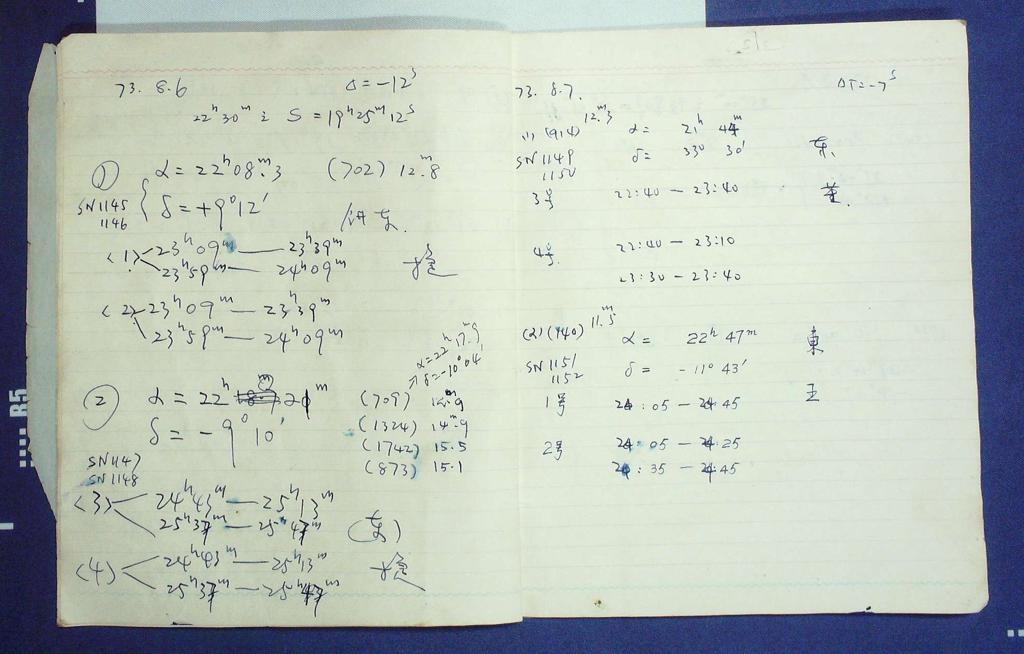 73. 8.6 Δ=-12ˢ
22ʰ30ᵐ S=19ʰ25ᵐ12ˢ
① α=22ʰ08ᵐ.3 (702) 12ᵐ.8
SN1145
1146
δ=+9°12′
<1> 23ʰ09ᵐ — 23ʰ39ᵐ
23ʰ59ᵐ — 24ʰ09ᵐ
<2> 23ʰ09ᵐ — 23ʰ39ᵐ
23ʰ59ᵐ — 24ʰ09ᵐ
α=22ʰ17ᵐ.9
→δ=-10°04′
② α=22ʰ 20ᵐ
δ=-9°10′
(709)
(1324) 14ᵐ.9
(1742) 15.5
(873) 15.1
SN1147
SN1148
<3> 24ʰ43ᵐ — 25ʰ13ᵐ
25ʰ37ᵐ — 25ʰ47ᵐ
<4> 24ʰ43ᵐ — 25ʰ13ᵐ
25ʰ37ᵐ — 25ʰ47ᵐ
73. 8.7. ΔT=-7ˢ
(1) (914) 12ᵐ.3 α= 21ʰ 44ᵐ
SN1149
1150
δ= 33° 30′
3号 22:40 — 23:40
4号. 22:40 — 23:10
23:30 — 23:40
(2) (740) 11ᵐ.5 α= 22ʰ 47ᵐ 東
SN1151
1152
δ= -11° 43′
王
1号 24:05 — 24:45
2号 24:05 — 24:25
24:35 — 24:45
R5